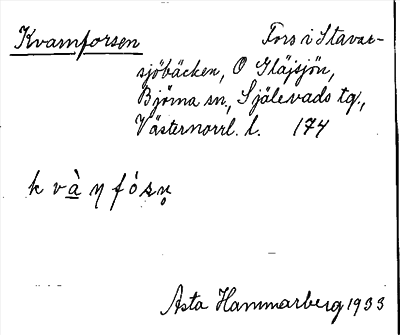 Kvamforsen Fors i Stavar-
sjöbäcken, O Gläjsjön,
Björna sn., Själevads tg.,
Västernorrl. l. 174
k v à ŋ f ó s n̥
Asta Hammarberg 1933